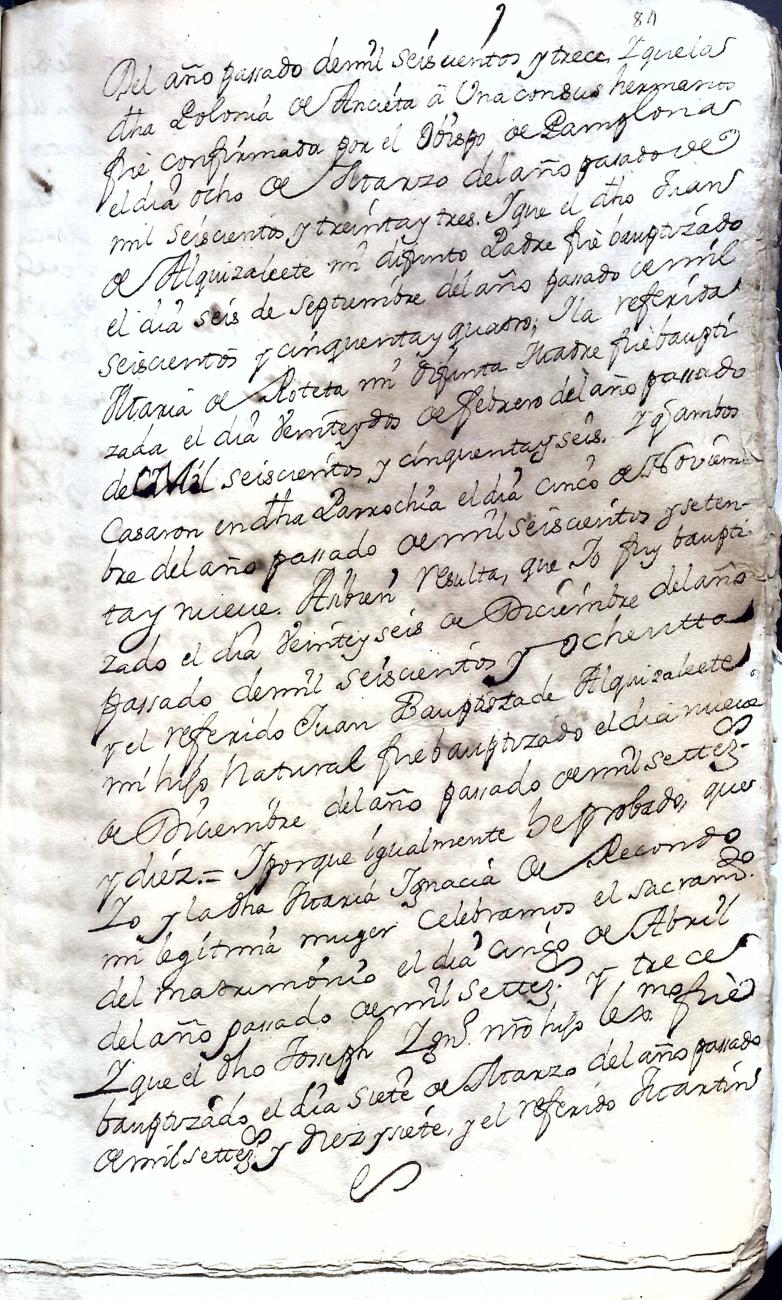 84
Del año passado de mil seiscientos y trece, Y que la
dha Polonia de Anciéta â Una con sus hermanos
fue confirmada por el Obispo de Pamplona
el dia ocho de Marzo del año pasado de
mil seiscientos y treinta y tres. Y que el dho Juan
de Alquizaleete mi difunto Padre fue bauptizado
el dia seis de septiembre del año passado de mil
seiscientos y cinquenta y quatro; Y la referida
Maria de Roteta mi difunta Madre fue baupti
zada el dia Veinte y dos de febrero del año passado
de Mil seiscientos y cinquenta y seis. Y q ambos
Casaron en dha Parrochia el dia cinco de Noviem
bre del año passado de mil seiscientos y seten-
ta y nueve. Asibien resulta, que Yo fuy baupti
zado el dia Veinte y seis de Diciembre del año
passado de mil seiscientos y ochentta
y el referido Juan Bauptista de Alquizaleete
mi hijo Natural fue bauptizado el dia nueve
de Diciembre del año passado de mil settez.
y diéz.= Y porque igualmente he probado, que
Yo y la dha Maria Ignacia de Recondo
mi legitima muger Celebramos el sacramto.
del matrimonio el dia cinco de Abril
del año passado de mil settez. y trece
Y que el dho Joseph Ygn. nro hijo lexmo fue
bauptizado el dia siete de Marzo del año passado
de mil settez. y diez y siete, y el referido Martin